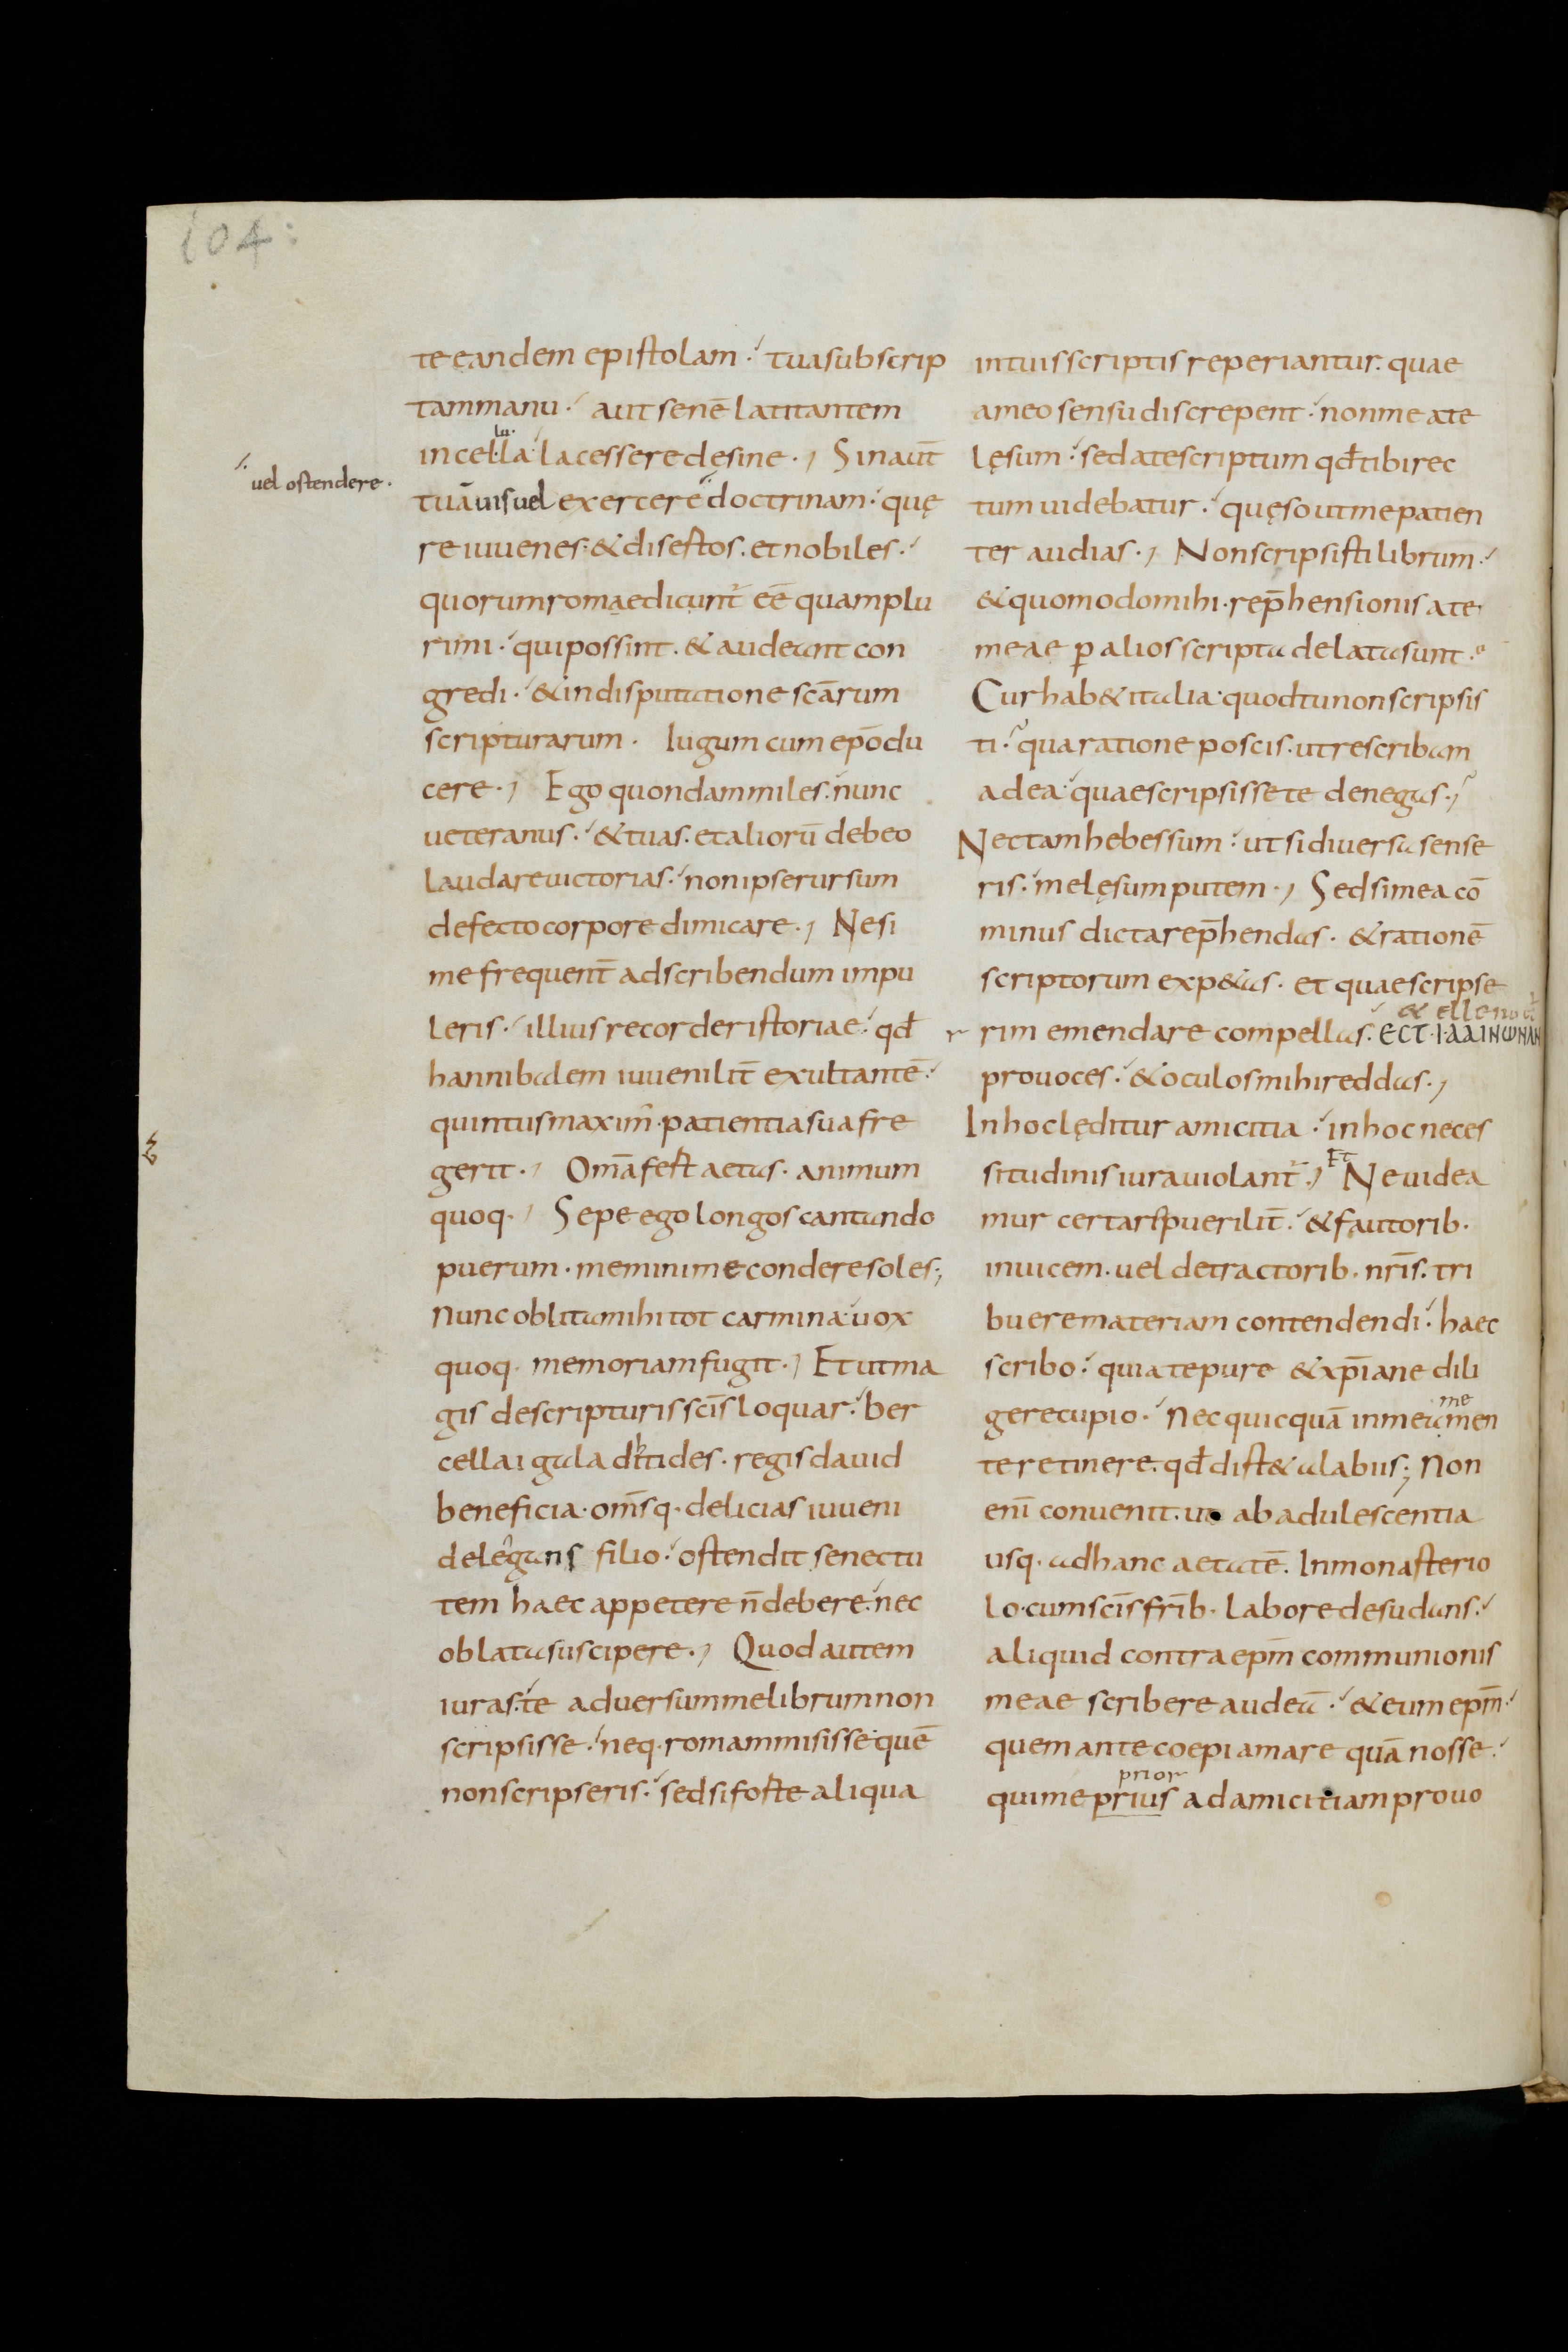 104:
te eandem epistolam. tua subscrip
tam manu. aut senē latitantem
in cella lacessere dęsine. Sin aut̄
lu.
uel ostendere.
tuā uis uel exercere doctrinam. quę
re iuuenes. & disertos. et nobiles.
quorum romae dicunt̄ eē quamplu
rimi. qui possint. & audeant con
gredi. & in disputatione scārum
scripturarum. Iugum cum ep̄o du
cere. Ego quondam miles. nunc
ueteranus. & tuas. et aliorū debeo
laudare uictorias. non ipse rursum
defecto corpore dimicare. Ne si
me frequent̄ ad scribendum impu
leris. illius recorder istoriae. qđ
hannibalem iuuenilit̄ exultantē.
quintus maxim̄. patientia sua fre
gerit. Om̄a fert aetas. animum
quoq. Sepe ego longos cantando
puerum. memini me condere soles;
Nunc oblita mihi tot carmina. uox
quoq. memoriam fugit. Et ut ma
gis de scripturis scīs loquar. ber
cellai galaadtides. regis dauid
beneficia. om̄sq. delicias iuueni
delegans filio. ostendit senectu
tem haec appetere n̄ debere. nec
oblata suscipere. Quod autem
iuras. te aduersum me librum non
scripsisse. neq. romam misisse quē
non scripseris. sed si forte aliqua
in tuis scriptis reperiantur. quae
a meo sensu discrepent. non me a te
lęsum. sed a te scriptum qđ tibi rec
tum uidebatur. quęso ut me patien
ter audias. Non scripsisti librum.
& quomodo mihi. rep̄hensionis a te
meae ꝑ alios scripta delata sunt.
Cur hab& italia. quod tu non scripsis
ti. qua ratione poscis. ut rescribam
ad ea. quae scripsisse te denegas.
Nec tam hebes sum. ut si diuersa sense
ris. me lęsum putem. Sed si mea cō
minus dicta rep̄hendas. & rationē
scriptorum exp&as. et quae scripse
rim emendare compellas. ЄCT·I·ΑΑΙΝωΝΑΝ
prouoces. & oculos mihi reddas.
In hoc lęditur amicitia. in hoc neces
situdinis iura uiolant̄. Ne uidea
Et
mur certare puerilit̄. & fautorib.
inuicem. uel detractorib. nr̄is. tri
buere materiam contendendi. haec
scribo. quia te pure & xp̄iane dili
gere cupio. Nec quicquā in mea men
me
te retinere. qđ dist& a labiis; Non
enī conuenit. ut ab adulescentia
usq. ad hanc aetatē. In monasterio
lo. cum scīs fr̄ib. labore desudans.
aliquid contra ep̄m communionis
meae scribere audeā. & eum ep̄m.
quem ante coepi amare quā nosse.
prior
qui me prius ad amicitiam prouo